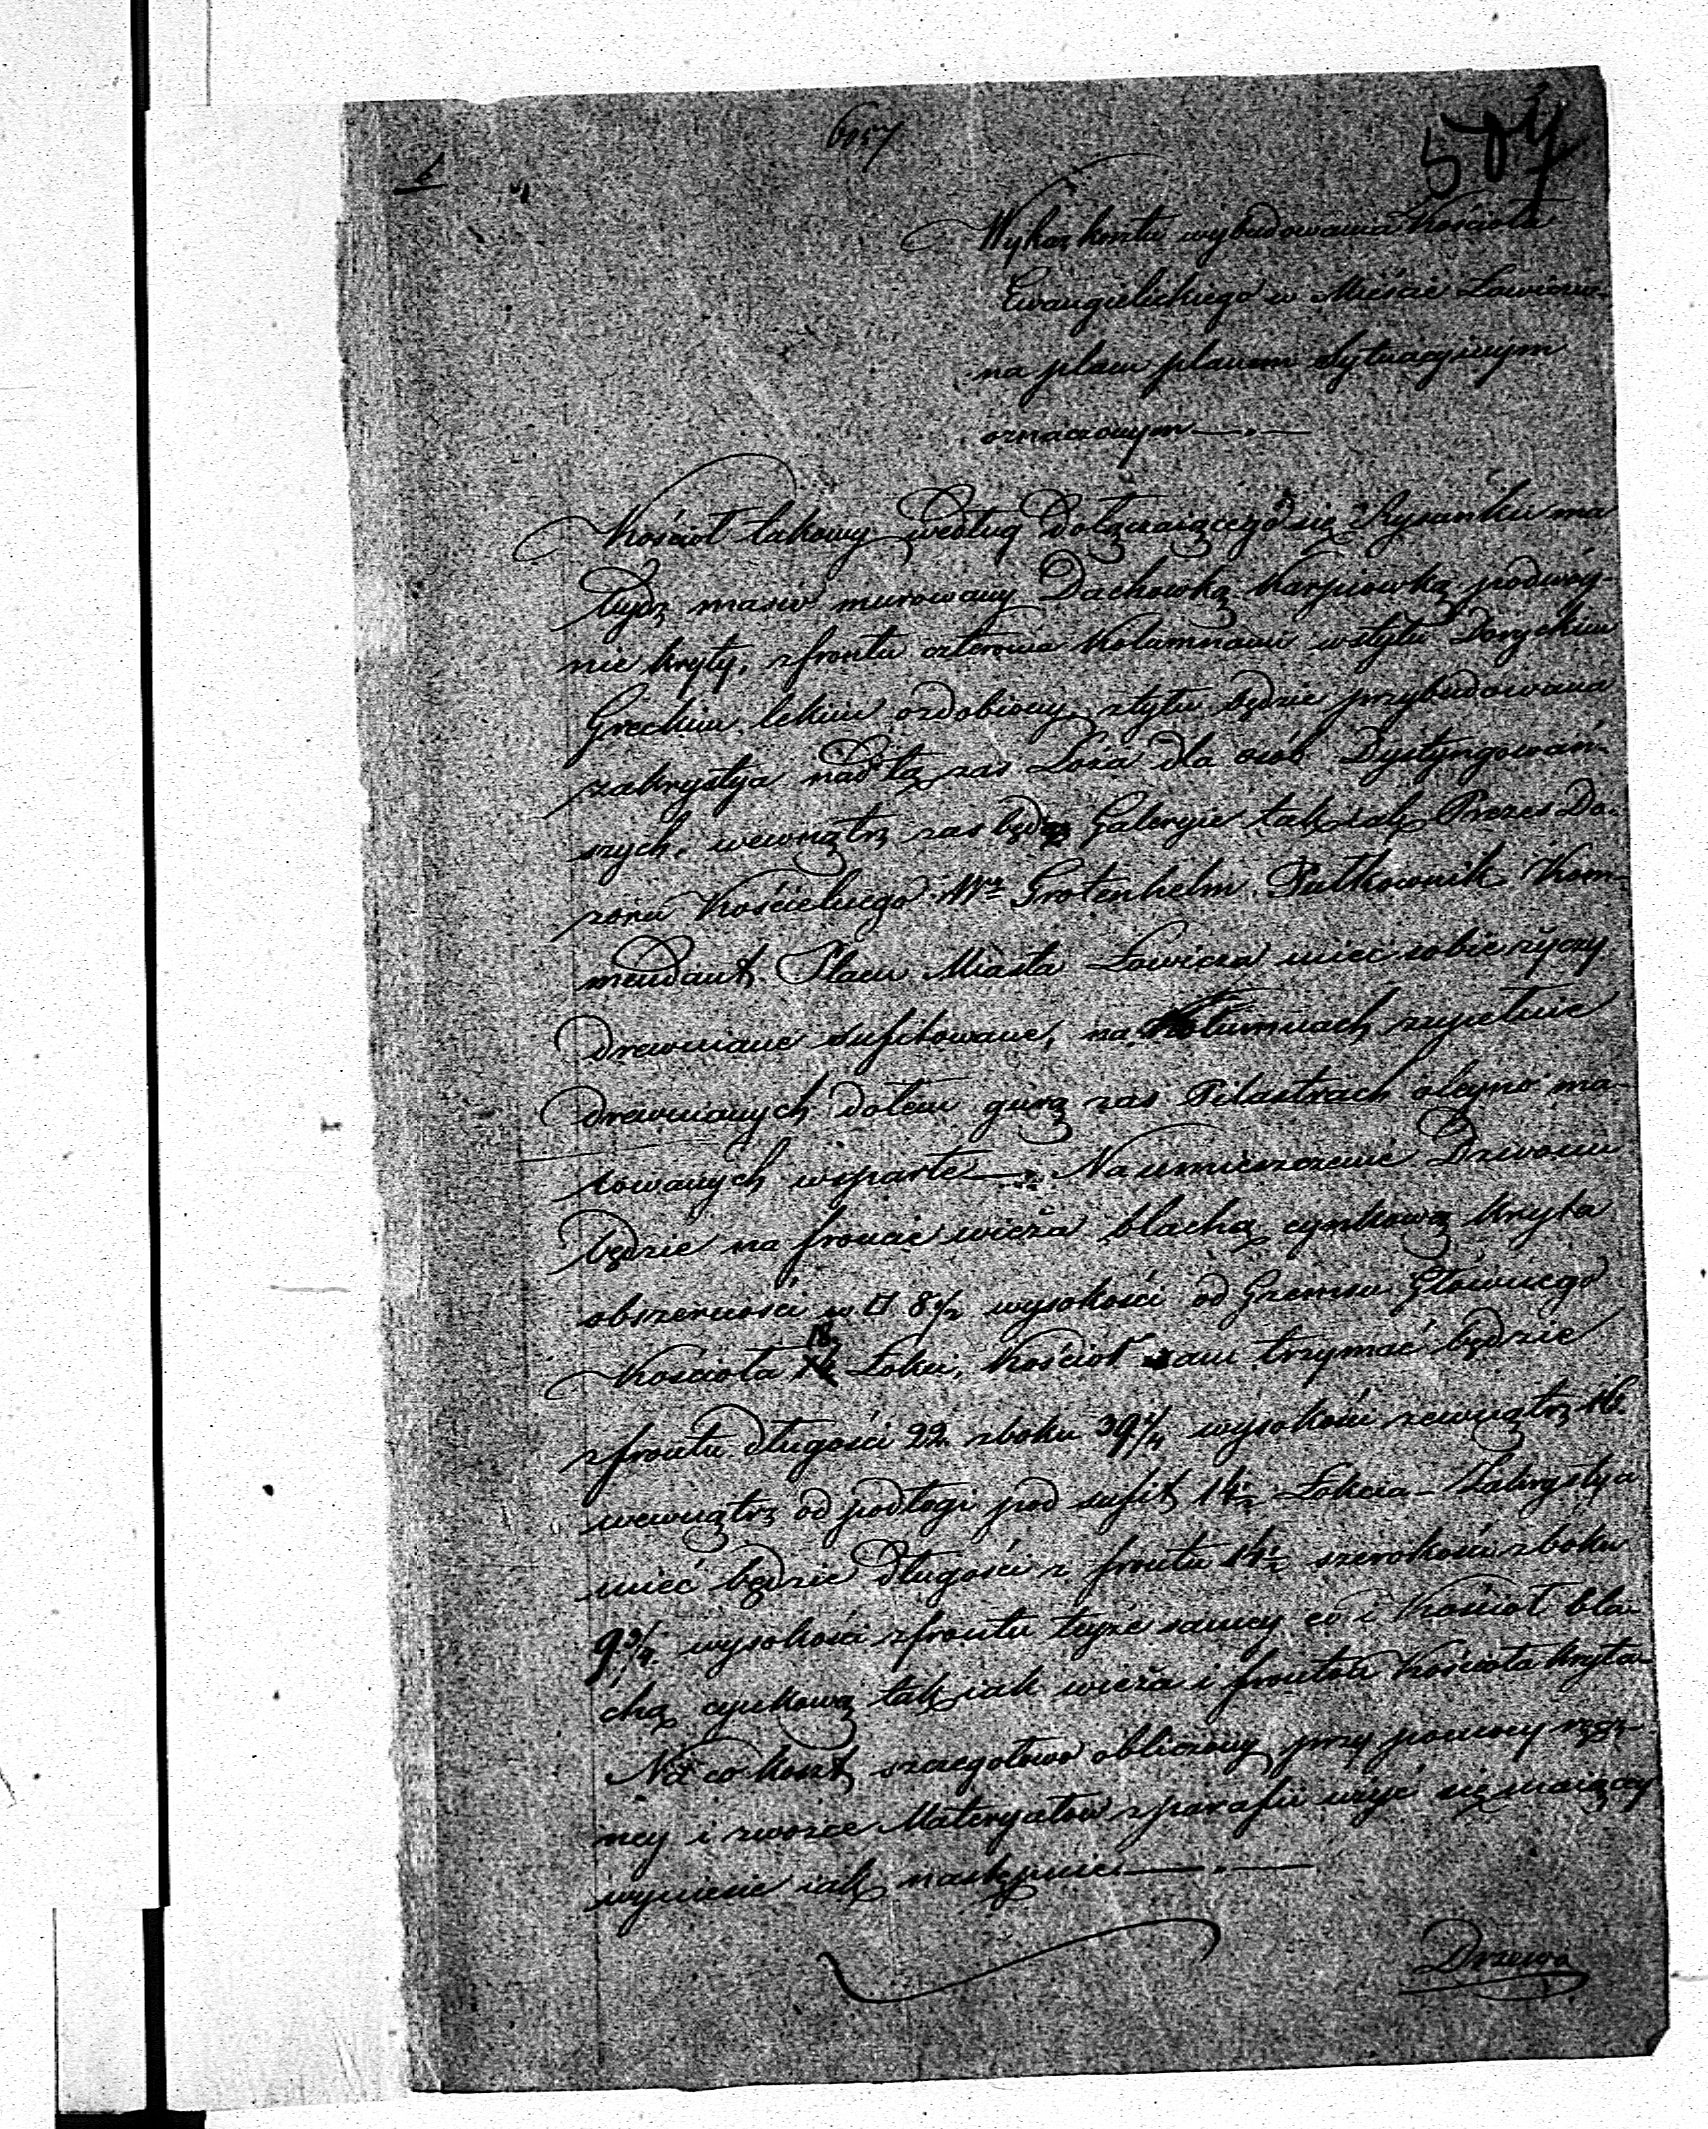 6057
507
1
Wykaz kosztu wybudowania Kościoła
Ewangielickiego w Mieście Łowiczu
na placu planem Sytuacyjnym
oznaczonym —.—
Kościoł takowy według dołączaiącego się Rysunku ma
bydź masiv murowany Dachowką Karpiowką podwóy-
nie kryty, z frontu czterema Kolumnami w stylu Doryckim
Greckim lekim ozdobiony, z tyłu będzie przybudowana
zakrystya nad tą zas Loża dla osób Dystyngowań-
szych, wewnątrz zas będą Galerye tak jak Prezes Do-
zoru Kościelnego Wny Grotenhelm Pułkownik Kom-
mendant Placu Miasta Łowicza mieć sobie życzy
drewniane sufitowane, na Kolumnach zupełnie
drewnianych dołem gurą zas Pilastrach oleyno ma-
lowanych wsparte —. Na umieszczenie Dzwonu
będzie na froncie wieża blachą cynkową kryta
obszerności w □ 8½ wysokości od Gzemsu Głównego
Kościoła 18 Łokci, Kościoł sam trzymać będzie
z frontu długości 22 z boku 39¼ wysokości zewnątrz 16
wewnątrz od podłogi pod sufit 14½ Łokcia – Zakrystya
mieć będzie długości z frontu 14½ szerokości z boku
9¾ wysokości z frontu teyże samey co i Kościoł bla-
chą cynkową tak jak wieża i fronton Kościoła kryta
Na co koszt szczegołowo obliczony przy pomocy ręcz-
ney i zwozce Materyałow z parafii użyć się maiącey
wyniesie iak następuie —.—
Drzewo